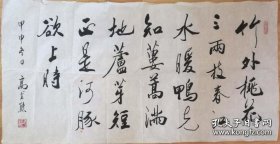 竹外桃花
三两枝春江
水暖鸭先
知蒌蒿满
地芦芽短
正是河豚
欲上时
甲申冬日